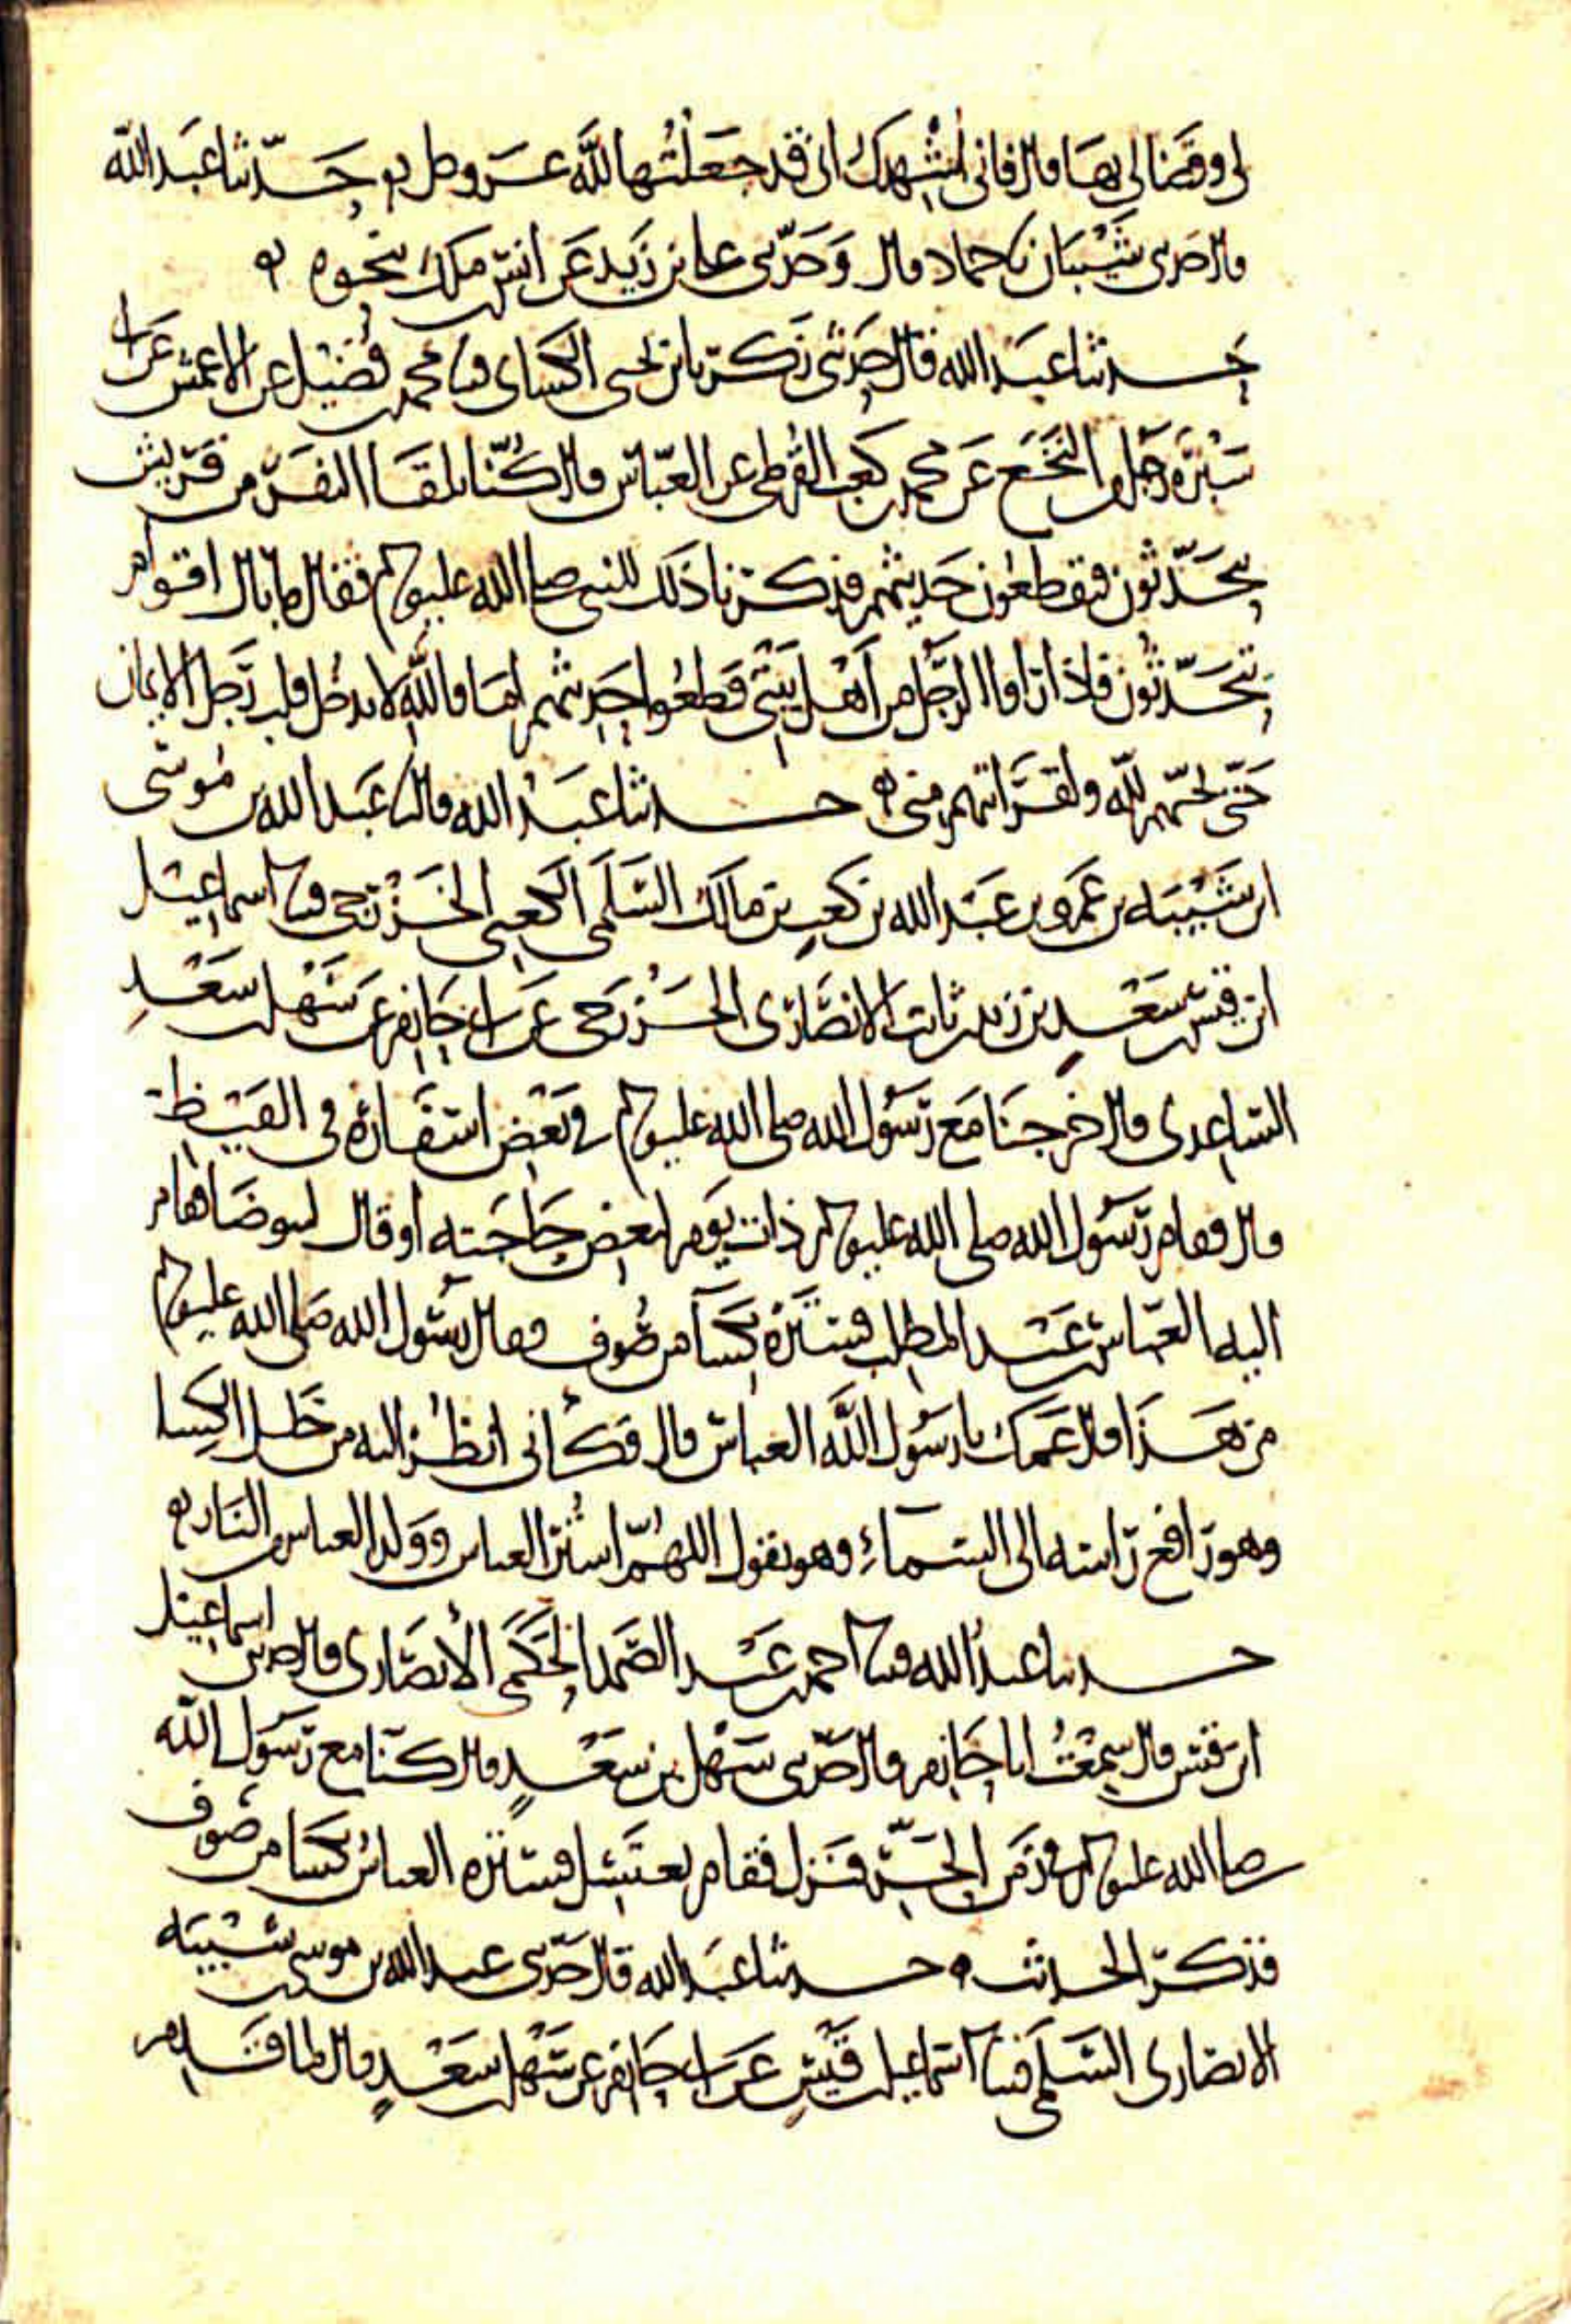 لي وقضا لي بها قال فاني اشهدك اني قد جعلتها لله عز وجل ۞ حدثنا عبد الله
قال حدثني شيبان نا حماد قال وحدثني علي بن زيد عن انس بن ملك بنحوه ۞
حدثنا عبد الله قال حدثني زكريا بن يحيى الكساي قثنا محمد بن فضيل عن الاعمش عن ابي
سبرة رجل من النخع عن محمد بن كعب القرظي عن العباس قال كنا نلقا النفر من قريش
يتحدثون فيقطعون حديثهم فذكرنا ذلك للنبي صلى الله عليه وسلم فقال ما بال اقوام
يتحدثون فاذا راوا الرجل من اهل بيتي قطعوا حديثهم اما والله لا يدخل قلب رجل الايمان
حتى يحبهم لله ولقرابتهم مني ۞ حدثنا عبد الله قال نا عبد الله بن موسى
ابن شيبه بن عمرو بن عبد الله بن كعب بن مالك السلمي الكعبي الخزرجي قثنا اسماعيل
ابن قيس بن سعد بن زيد بن ثابت الانصاري الخزرجي عن ابي حازم عن سهل بن سعد
الساعدي قال خرجنا مع رسول الله صلى الله عليه وسلم في بعض اسفاره في القيظ
قال فقام رسول الله صلى الله عليه وسلم ذات يوم لبعض حاجته او قال ليتوضا فقام
اليه العباس بن عبد المطلب فستره بكسآ من صوف فقال رسول الله صلى الله عليه وسلم
من هذا قال عمك يا رسول الله العباس قال فكأني انظر اليه من خلل الكسا
وهو رافع راسه الى السماء وهو يقول اللهم استر العباس وولد العباس من النار ۞
حدثنا عبد الله قثنا احمد بن عبد الصمد الحكمي الانصاري قال حدثني اسماعيل
ابن قيس قال سمعت ابا حازم قال حدثني سهل بن سعد قال كنا مع رسول الله
صلى الله عليه وسلم في زمن الحر فنزل فقام يغتسل فستره العباس بكسا من صوف
فذكر الحديث ۞ حدثنا عبد الله قال حدثني عبد الله بن موسى بن شيبه
الانصاري السلمي قثنا اسماعيل بن قيس عن ابي حازم عن سهل بن سعد قال لما قدم